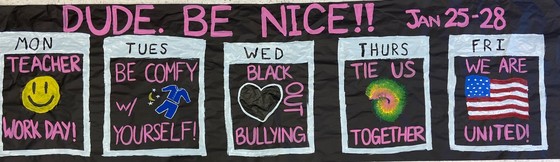 DUDE. BE NICE!! JAN 25-28
MON
TEACHER
WORK DAY!
TUES
BE COMFY
w/
YOURSELF!
WED
BLACK
OUT
BULLYING
THURS
TIE US
TOGETHER
FRI
WE ARE
UNITED!